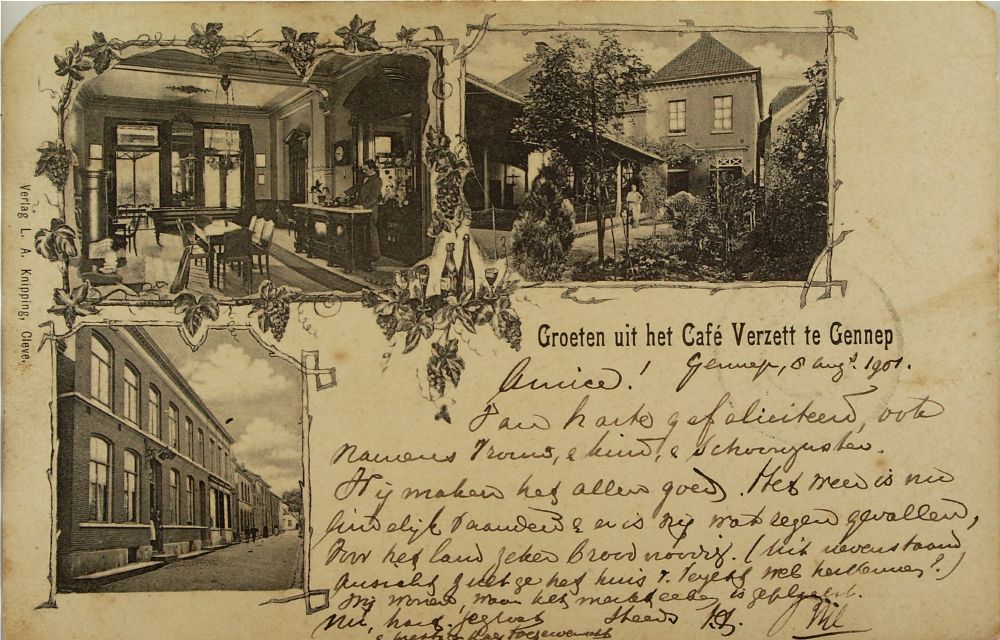 Verlag L. A. Knipping, Cleve.
Groeten uit het Café Verzett te Gennep
Gennep, 8 augt. 1901.
Amice!
Van harte gefeliciteerd, ook
namens vrouw, & kind, & schoonzuster.
Wij maken het allen goed. Het weer is nu
eindelijk & er is wat regen gevallen,
voor het land zeker broodnoodig. (Uit nevenstaand
ansicht zult ge het huis v. wel herkennen?)
Wij wonen, waar het is geplaatst.
Nu, hart. gegroet Steeds